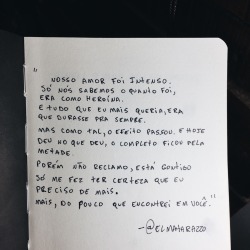 "
NOSSO AMOR FOI INTENSO.
SÓ NÓS SABEMOS O QUANTO FOI,
ERA COMO HEROÍNA.
E TUDO QUE EU MAIS QUERIA, ERA
QUE DURASSE PRA SEMPRE.
MAS COMO TAL, O EFEITO PASSOU. E HOJE
DEU NO QUE DEU, O COMPLETO FICOU PELA
METADE.
PORÉM NÃO RECLAMO, ESTÁ CONTIDO
SÓ ME FEZ TER CERTEZA QUE EU
PRECISO DE MAIS.
MAIS, DO POUCO QUE ENCONTREI EM VOCÊ."
-@ELMATARAZZO